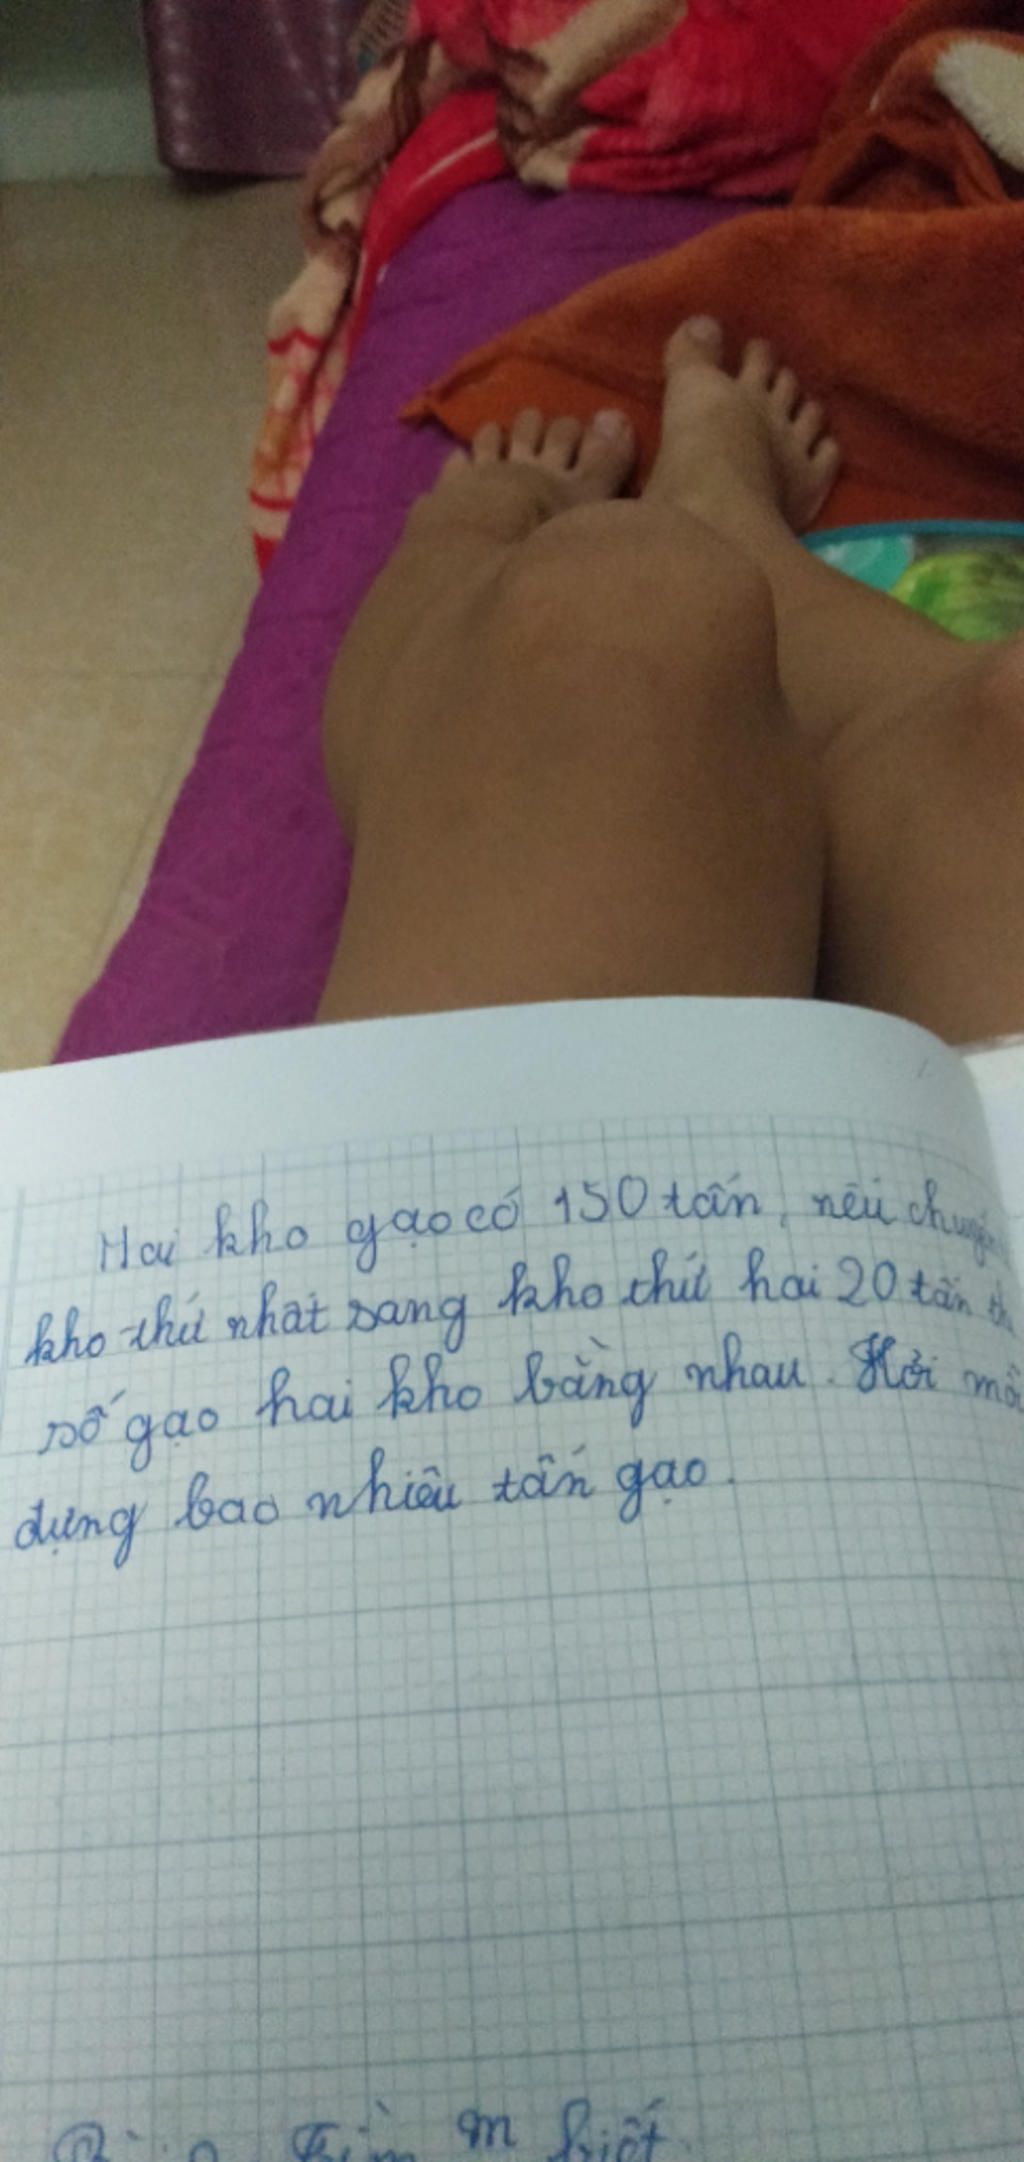 Hai kho gạo có 150 tấn, nếu chuyển
kho thứ nhất sang kho thứ hai 20 tấn
số gạo hai kho bằng nhau. Hỏi
dựng bao nhiêu tấn gạo.
Tìm m biết